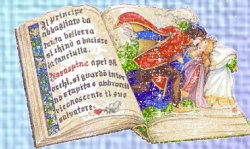 Il principe
abbagliato da
tanta bellezza
si chinò a baciare
la fanciulla.
Rosaspina aprì gli
occhi, si guardò intor
no stupita e
riconoscente il suo
salvatore.